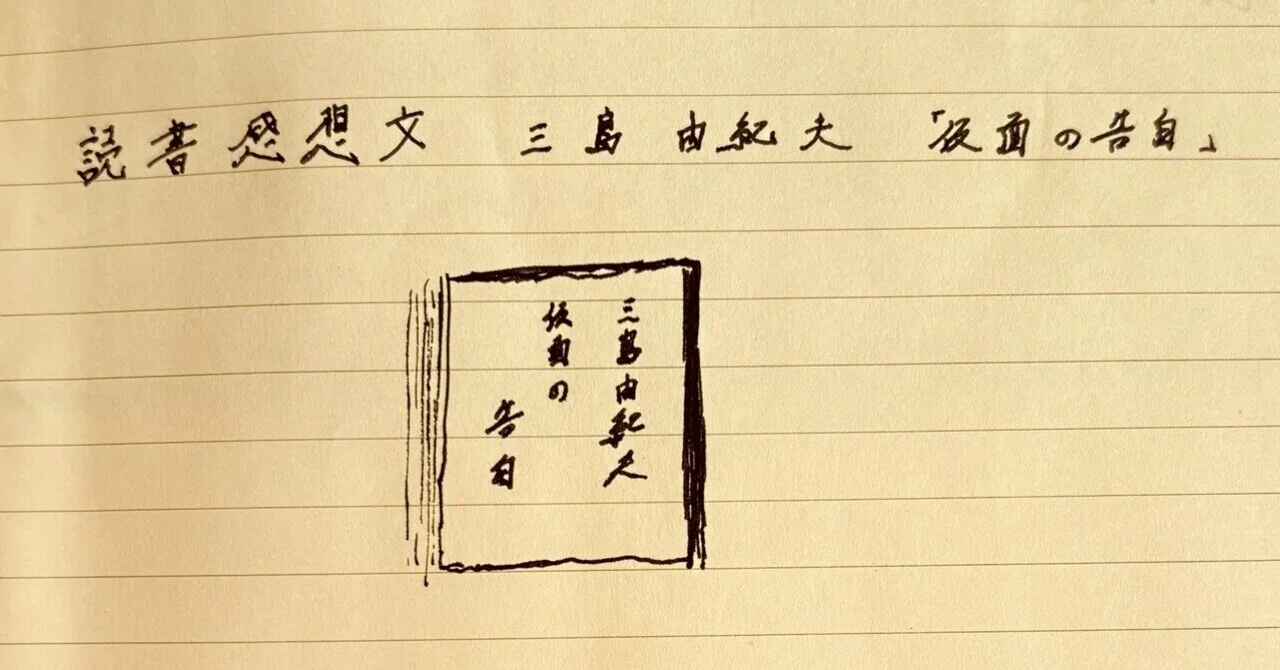 読書感想文 三島由紀夫 「仮面の告白」
三島由紀夫
仮面の
告白